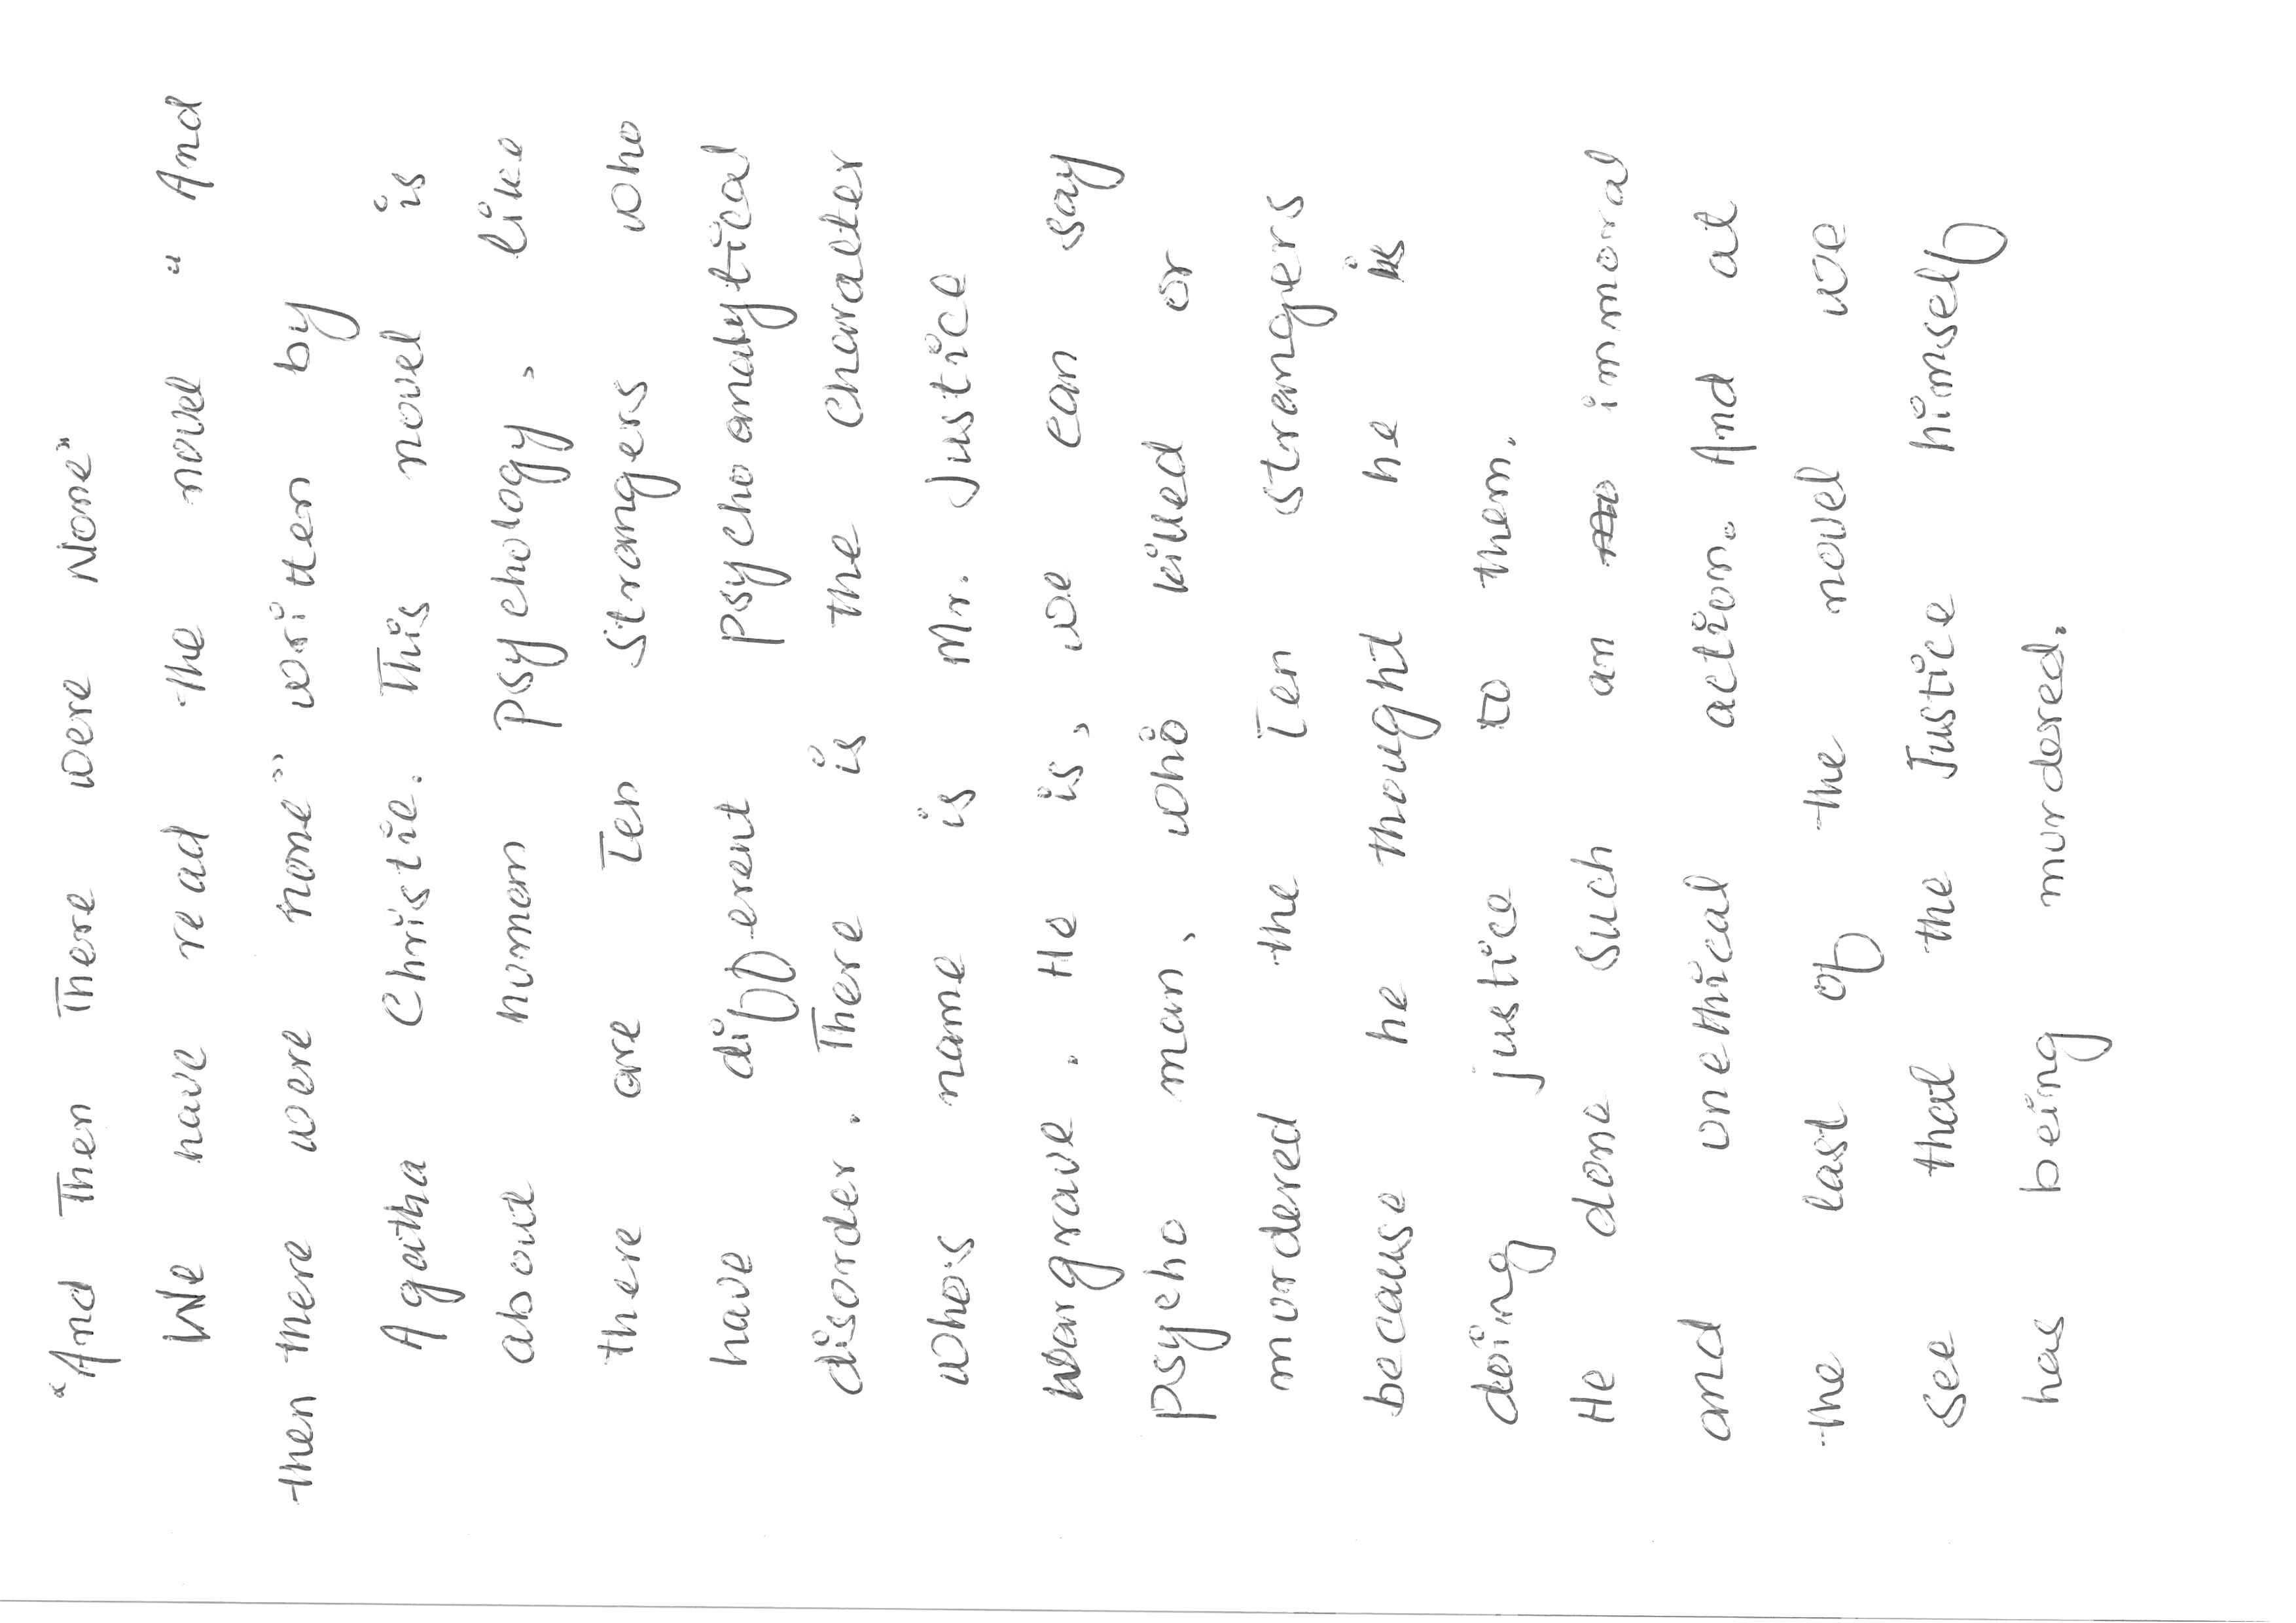 "And Then There were None"
We have read the novel " And
then there were none" written by
Agatha Christie. This novel is
about human psychology, like
there are Ten strangers who
have different psychoanalytical
disorder. There is the character
who's name is Mr. Justice
Wargrave. He is, we can say
psycho man, who killed or
murdered the Ten strangers
because he thought he is
doing justice to them.
He done such an immoral
and unethical action. And at
the last of the novel we
see that the Justice himself
has being murdered.